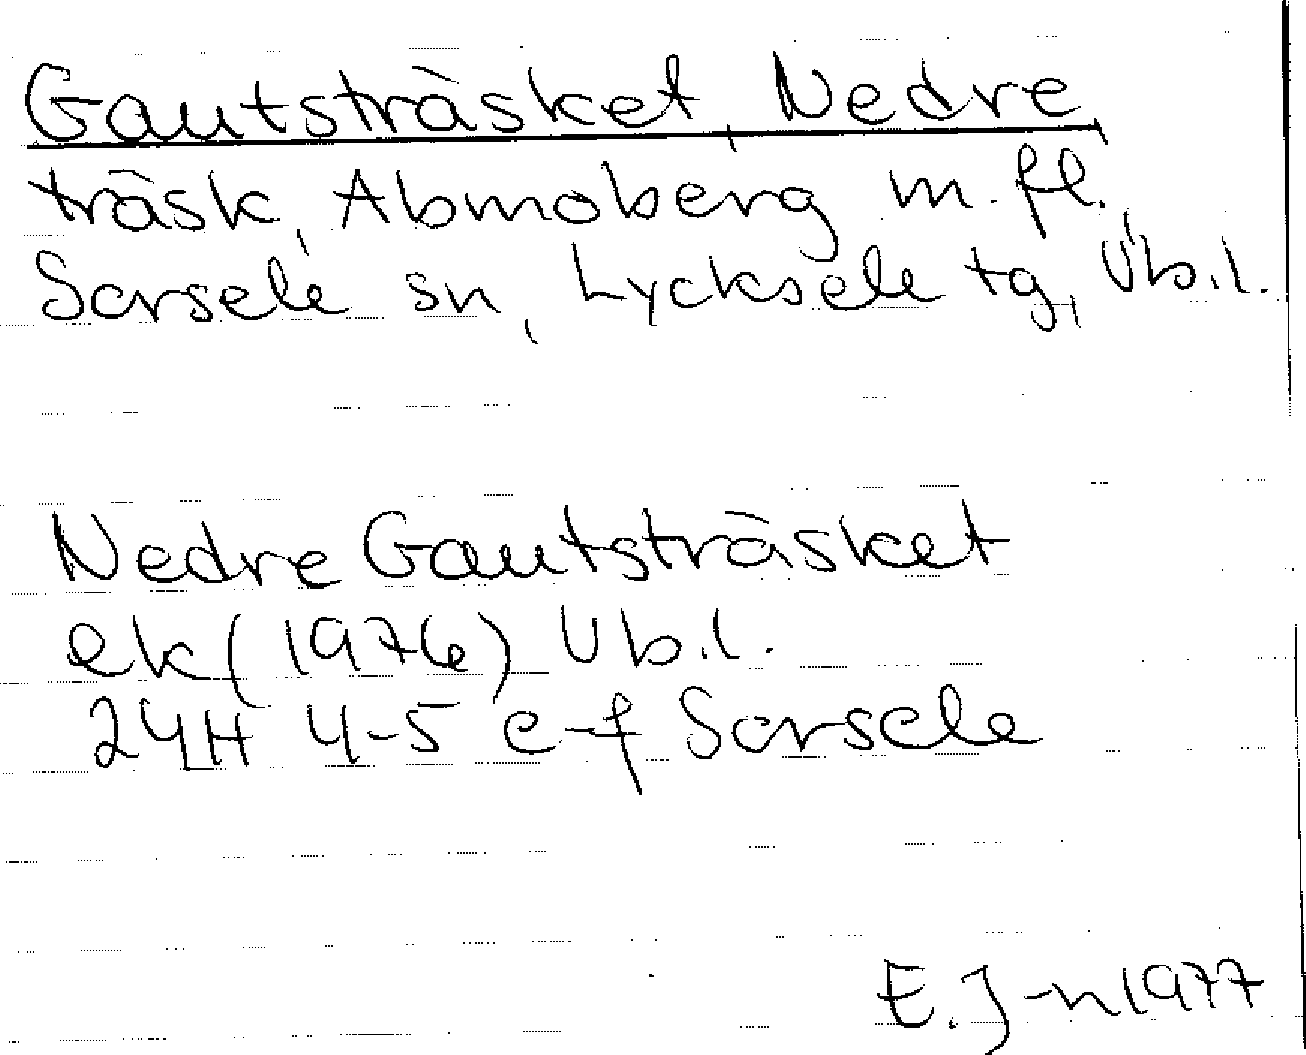 Gautsträsket, Nedre
träsk, Abmoberg m. fl.,
Sorsele sn, Lycksele tg, Vb.l.
Nedre Gautsträsket
ek (1976) Vb.l.
24H 4-5 e-f Sorsele
E. J-n 1977